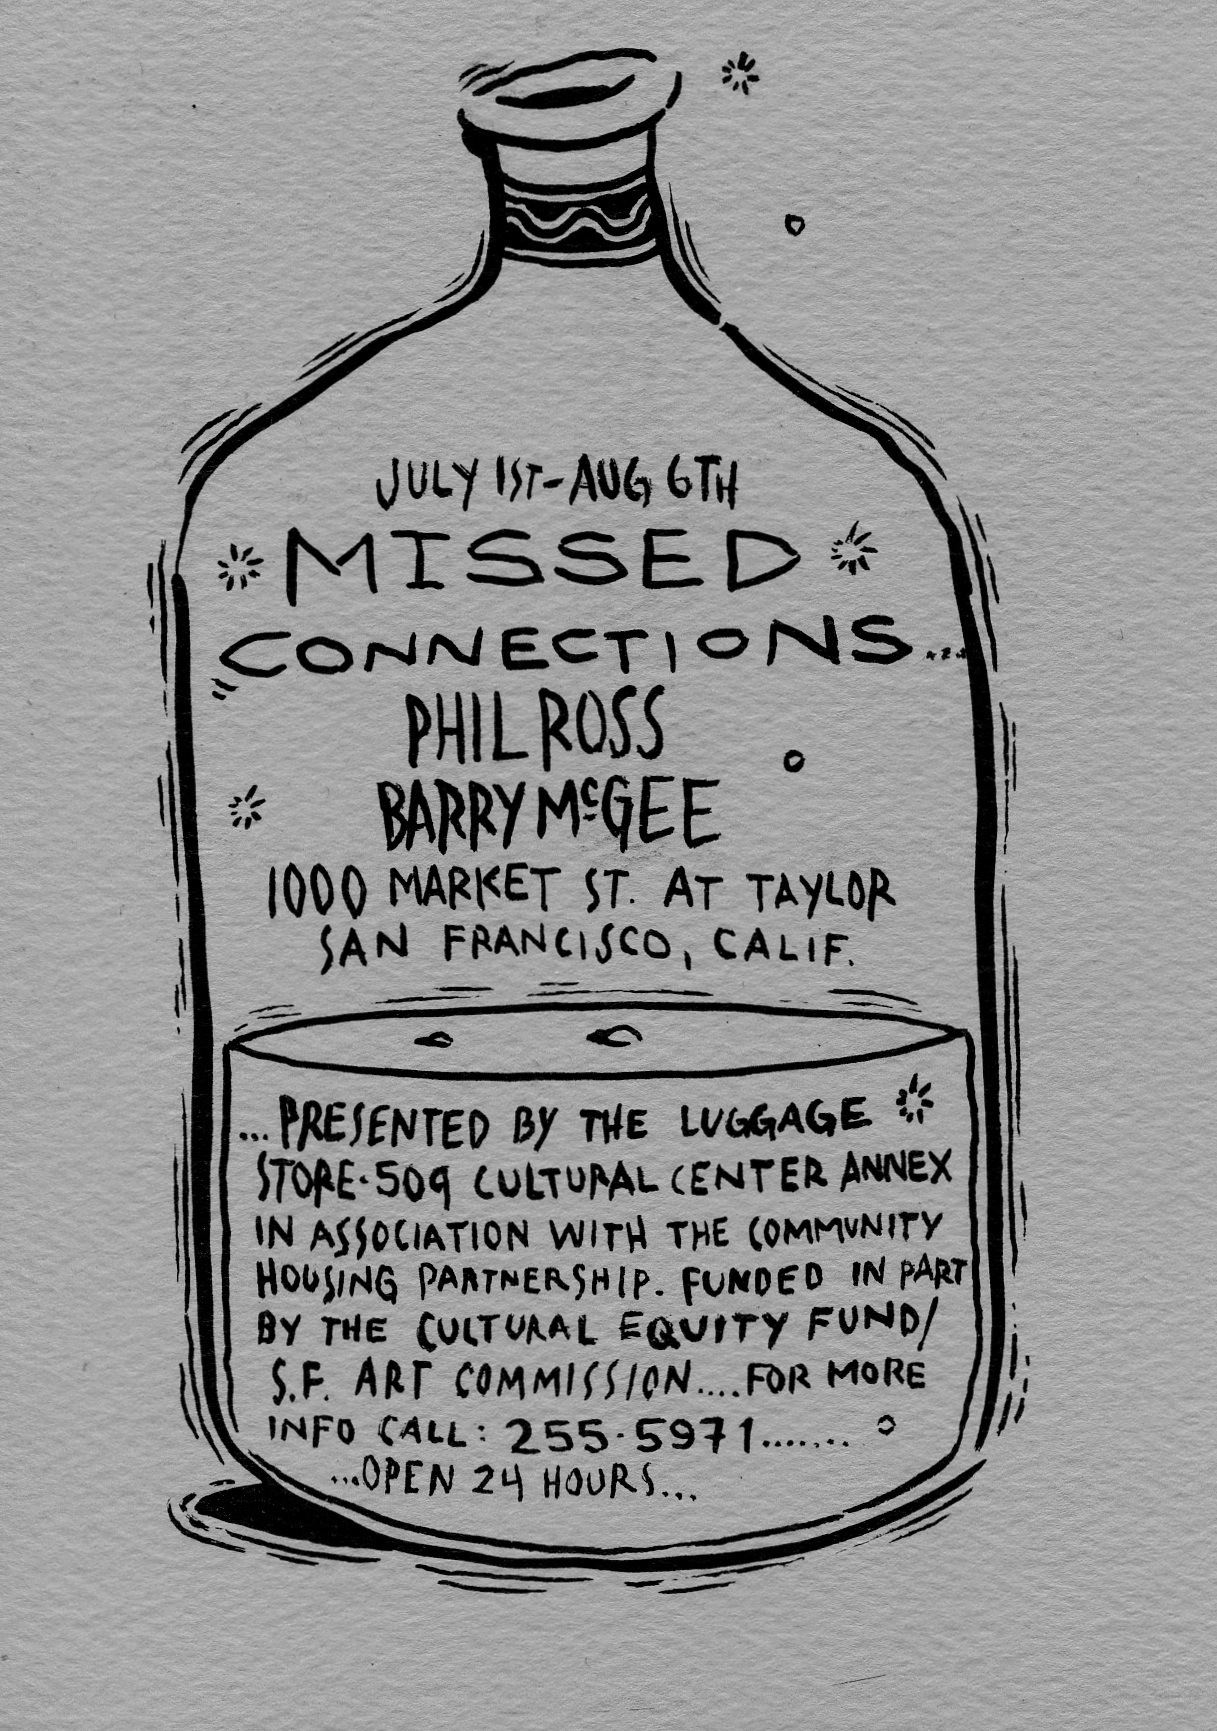 JULY 1ST-AUG 6TH
MISSED
CONNECTIONS...
PHIL ROSS
BARRY McGEE
1000 MARKET ST. AT TAYLOR
SAN FRANCISCO, CALIF.
...PRESENTED BY THE LUGGAGE
STORE·509 CULTURAL CENTER ANNEX
IN ASSOCIATION WITH THE COMMUNITY
HOUSING PARTNERSHIP. FUNDED IN PART
BY THE CULTURAL EQUITY FUND/
S.F. ART COMMISSION....FOR MORE
INFO CALL: 255·5971.......
...OPEN 24 HOURS...